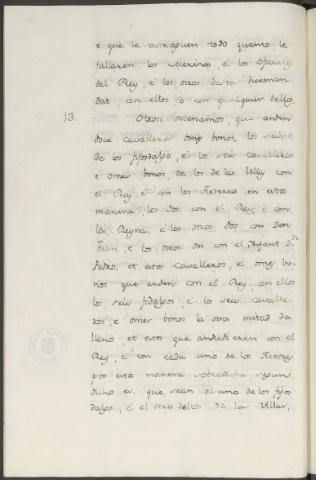 e que le atreguen todo quanto le
fallaren los Merinos, e los oficiales
del Rey, e los otros desta herman-
dat, con ellos o con qualquier dellos,
13. Otrosi ordenamos, que anden
doce cavalleros omes bonos, los seis
de los fijosdalgo, e los seis cavalleros
e omes bonos, de los de las Villas con
el Rey, e con los Tutores en esta
manera, los dos con el Rey, e con
la Reyna, e los otros dos con Don
Juan, e los otros dos con el Infante Dn.
Pedro, et estos cavalleros, e omes bo-
nos que anden con el Rey, con ellos
los seis fidalgos, e los seis cavalle-
ros, e omes bonos la otra mitad del
llano, et estos que andudieren con el
Rey, e con cada uno de los Tutores
por esta manera sobredicha segun
dicho es que sean el uno de los fijos-
dalgo, e el otro dellos de las Villas,